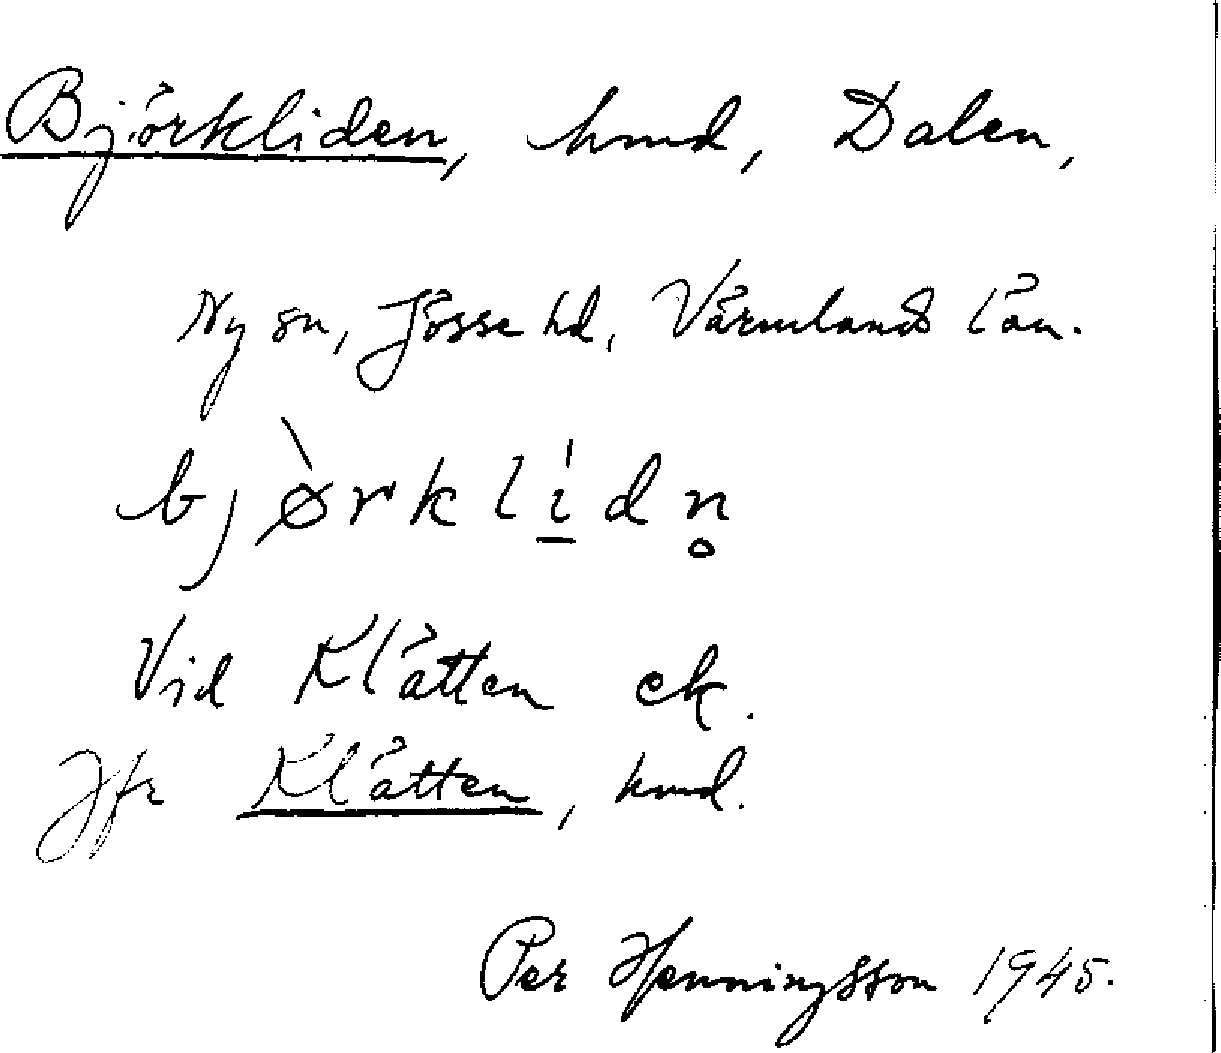 Björkliden, hmd, Dalen,
Ny sn, Jösse hd, Värmlands län.
bjø̀rklí̱dn̥
Vid Klätten ek.
Jfr Klätten, hmd.
Per Henningsson 1945.